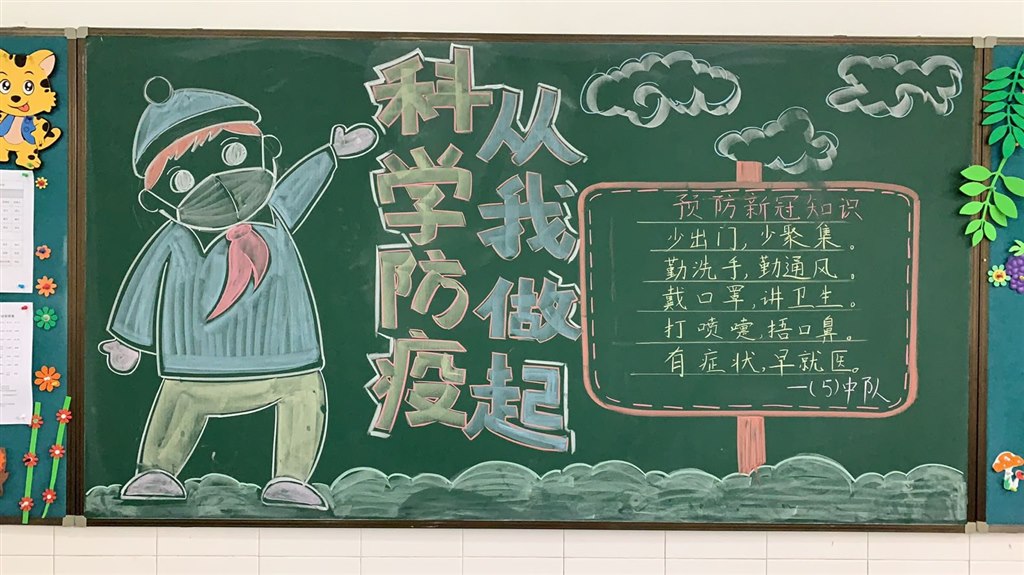 科学防疫
从我做起
预防新冠知识
少出门,少聚集。
勤洗手,勤通风。
戴口罩,讲卫生。
打喷嚏,捂口鼻。
有症状,早就医。
一(5)中队